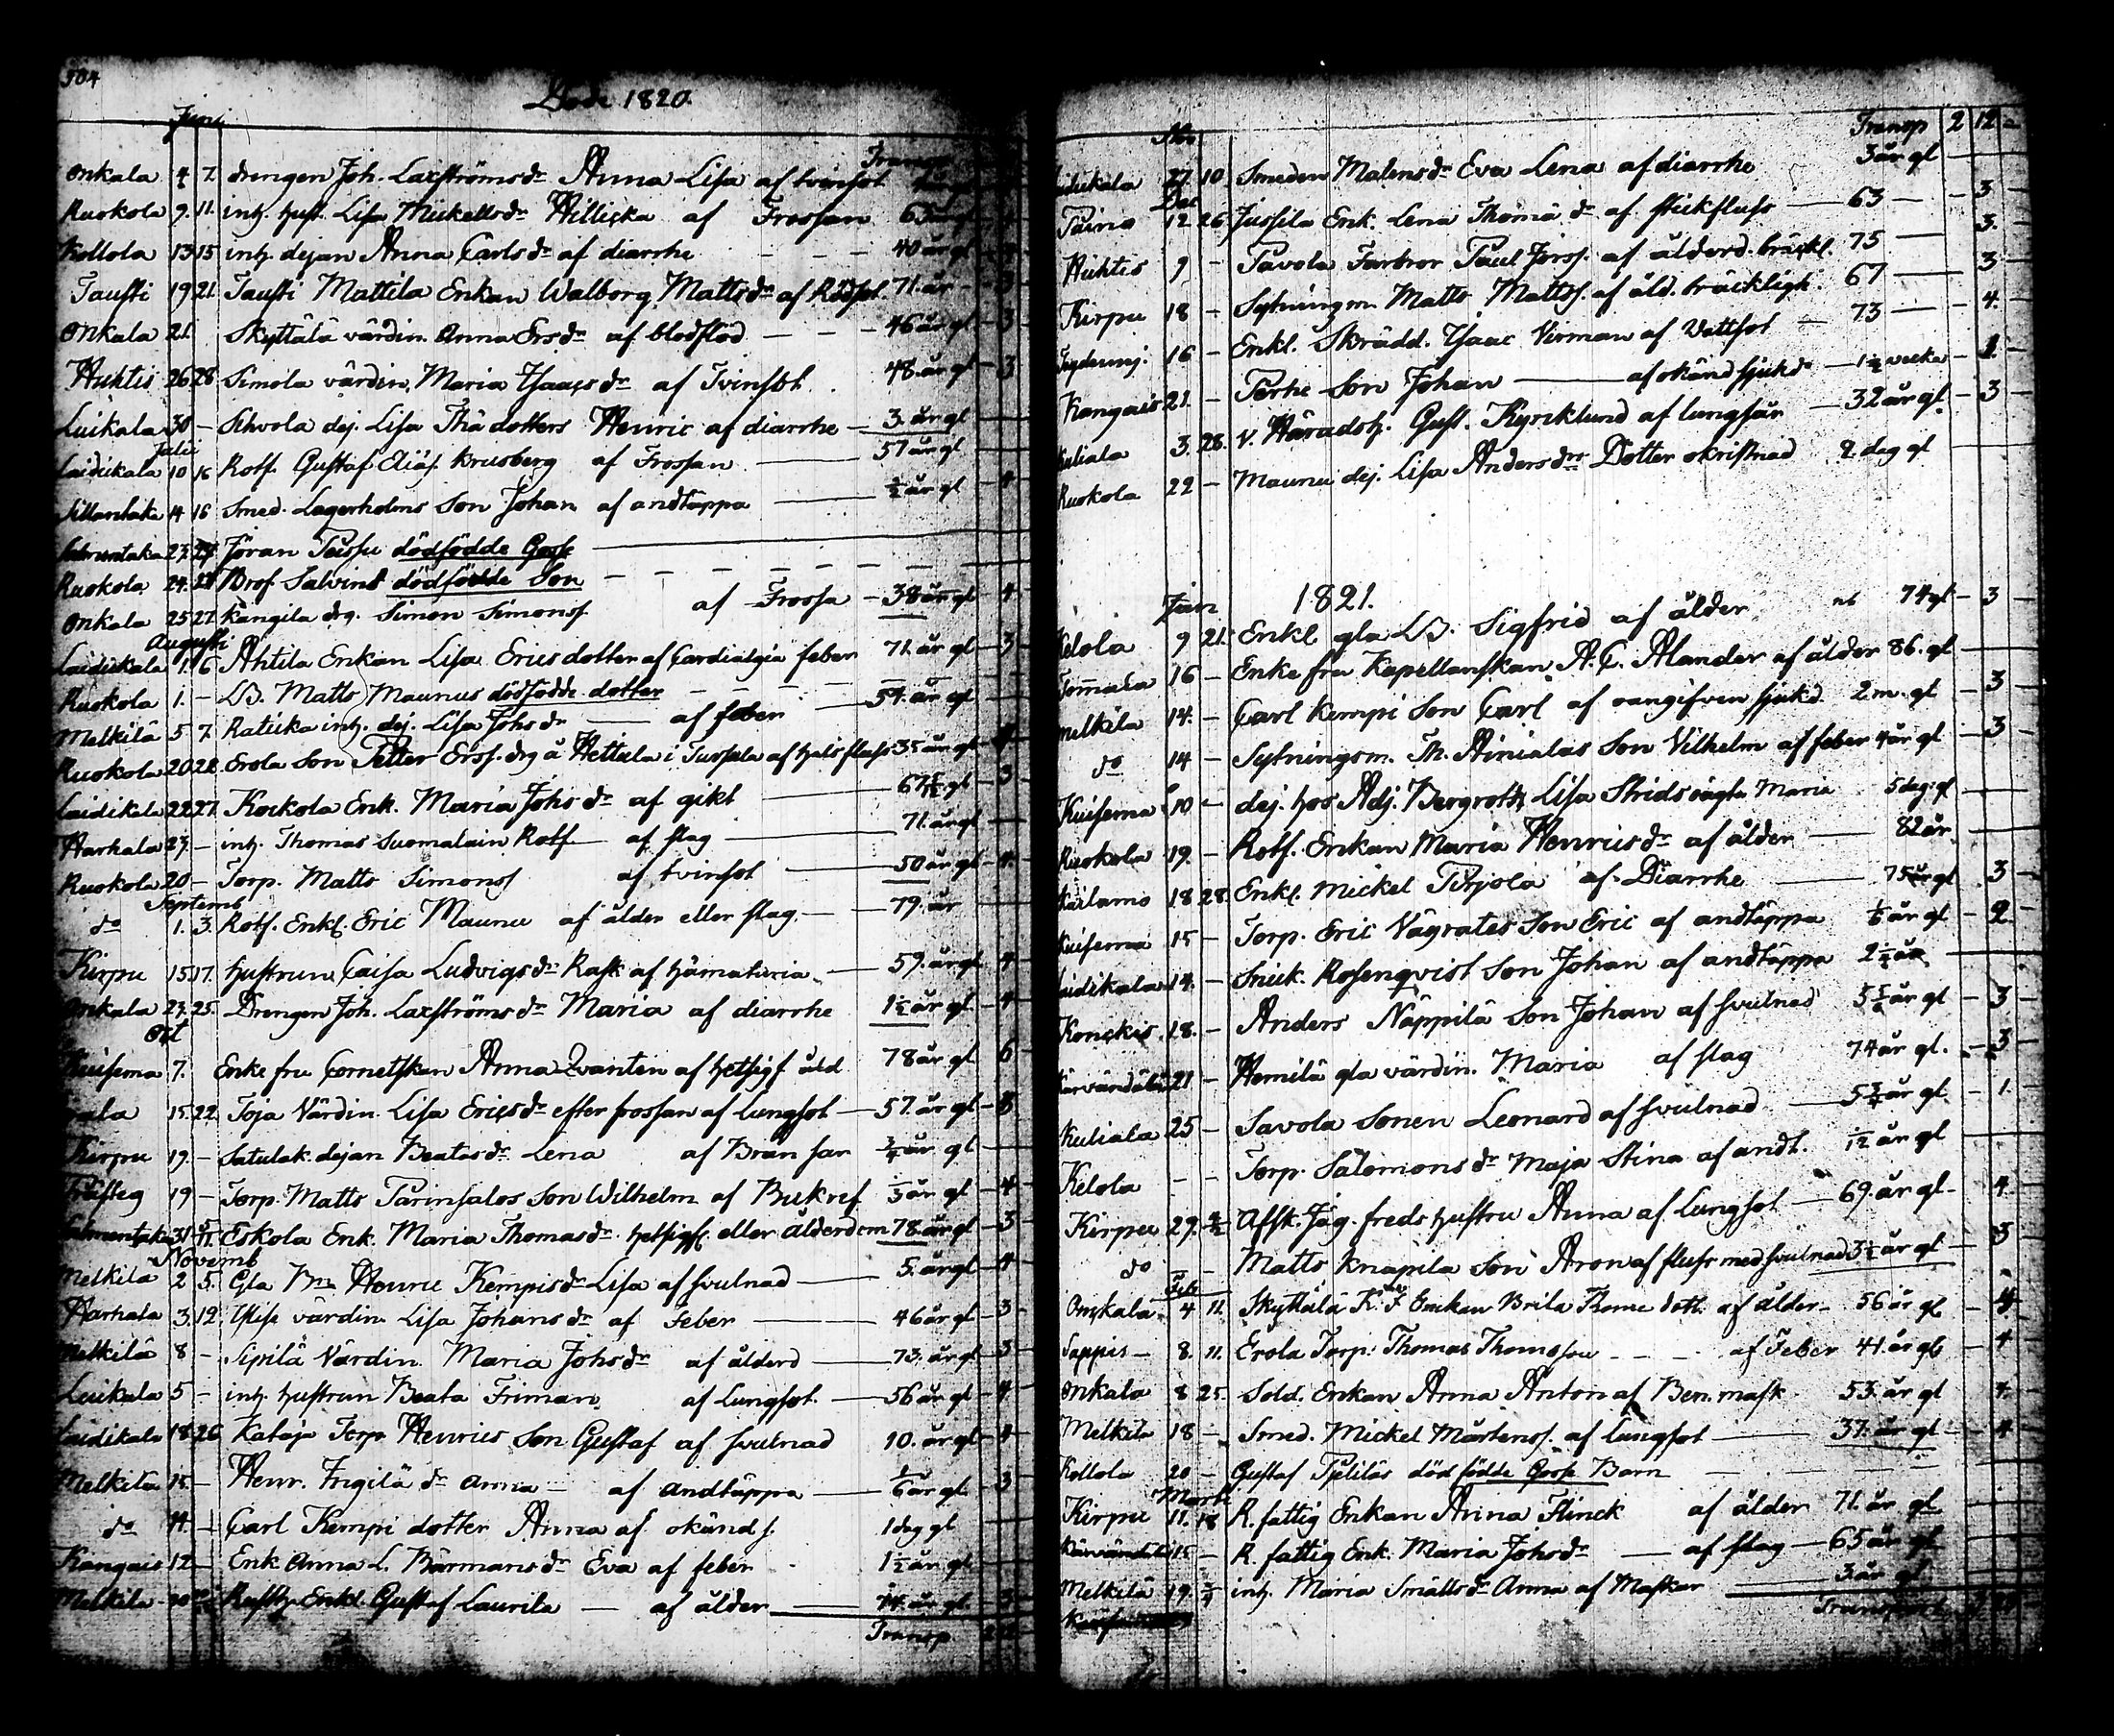 504
Döde 1820.
Juni
Transp
Onkala 4 7. drengen Joh. Laxströms dr Anna Lisa af tvinsot
Ruokola 9. 11. inh. hust. Lisa Mickellsdr Hillicka af Frossan 63 år gl
Kollola 13 15 inh. dejan Anna Carlsdr af diarrhe - - - 40 år gl
Tausti 19 21. Tausti Mattila Enkan Walborg Mattsdr af Rödsot. 71. år - 3
Onkala 21. Skyttälä värdin. Anna Ersdr af blodstod - - - 46 år gl - 3
Huhtis 26 28 Simola värdin. Maria Isaacsdr af Tvinsot. 48. år gl - 3
Luikala 30 - Sihvola dej. Lisa Thä dotters Henric af diarrhe - 3. år gl
Julii
Laidikala 10 16 Rotf. Gustaf Eliäs. Krusberg af Frossan 57 år gl
14 16 Smed. Lagerholms Son Johan af andtäppa ½ år gl 4
27. Jöran Paissu dödfödde Gosse
Ruokola 24. 28 Brof. Salvins dödfödde Son
Onkala 25 27. Kangila drg. Simon Simonss. af Frossa - 38 år gl 4
Augusti
Laidikala 1. 6 Ahtila Enkan Lisa Ericsdotter af Cardialgia feber 71. år gl 3
Ruokola 1. - LB. Matts Maunus dödfödde dotter
Melkilä 5 7. Raticka inh. dej. Lisa Johsdr af feber 54. år gl
Ruokola 20 28. Erola Son Petter Erss. drg å Hettula i Tussula af halsfluss 35 år gl
Laidikala 22 27. Kockola Enk. Maria Johsdr af gikt 67 gl 3
Harhala 27. - inh. Thomas Suomalain Rotf. af slag 71. år gl
Ruokola 20 - Torp. Matts Simonss af tvinsot 50 år gl 4.
Septemb
do 1. 3. Rotf. Enkl. Eric Maunu af ålder eller slag. 79. år
Kirpu 15 17. hustrun Caisa Ludvigsdr Rask af hämaturia 59. år gl 4
Onkala 23. 25. Drengen Joh. Laxströmsdr Maria af diarrhe 1½ år gl - 4
Oct
Kuisema 7. Enke fru Cornetskan Anna Qvantén af hetsigf åld 78 år gl 6
15 22. Toja Värdin. Lisa Ericsdr efter frossan af lungsot 57. år gl 3
Kirpu 19. - Satulak. dejan Beatasdr Lena af Brånsår ¾ år gl
19 - Torp. Matts Parinsalos Son Wilhelm af Bukref ⅓ år gl - 4
31 Eskola Enk. Maria Thomasdr hetsigf. eller ålderdom 78. år gl - 3
Novemb
Melkila 2 5. Gla Henric Kempisdr Lisa af svulnad 5. år gl 4
Harhala 3. 12. värdin Lisa Johansdr af Feber 46 år gl - 3
Melkilä 8 - Sipilä Värdin. Maria Johsdr af ålderd 73. år gl - 3
Luikala 5 - inh. hustrun Beata Friman af lungsot. 56 år gl - 4
Laidikala 18 26 Kataja Torp. Henrics Son Gustaf af svulnad 10. år gl - 4
Melkila 15 - Henr. Frigilä dr Anna af andtäppa 1/6 år gl - 3
do 14. - Carl Kempi dotter Anna af okänd s. 1 dag gl
Kangais 12 - Enk. Anna L. Bärmansdr Eva af feber 1½ år gl
Melkila 20 Rusth. Enkl. Gustaf Laurila - af ålder 74. år gl. 3
Transp
Transp 2 12
Nov
27 10 Smeden Malensdr Eva Lena af diarrhe 3 år gl
Dec
Paino 12 26 Jussila Enk. Lena Thomä dr af stickfluss 63 - 3
Huhtis 9 - Pavola Farbror Paul Jörss. af ålderd. bräckl. 75 3.
Kirpu 18 - Sytningm. Matts Mattss. af åld. bräckligh. 67 3
16 - Enkl. Skrädd. Isaac Virman af Vattsot 73 4.
Kangais 21. - Perhe Son Johan af okänd sjukd. 1½ vecka
Kuliala 3. 28. v. Häradsh. Gust. Kyrcklund af lungsår 32 år gl. - 3
Ruokola 22 - Maunu dej. Lisa Andersdrs Dotter okristnad 2 dag gl
1821.
Jan
Kelola 9 21. Enkl. gla LB. Sigfrid af ålder 74 gl - 3
Tommala 16 - Enke fru Kapellanskan A. C. Alander af ålder 86. gl
Melkila 14. - Carl Kempi Son Carl af oangifven sjukd. 2 m. gl 3
do 14 - Sytningsm. Th. Ainialas Son Vilhelm af feber 4 år gl 3
Kuisema 10 - dej. hos Adj. Bergroth Lisa Strids oägta Maria 5 dag. gl
Ruokola 19. - Rotf. Enkan Maria Henricsdr af ålder 82 år.
18 28. Enkl. Mickel Pirjola af Diarrhe 75 år gl 3
Kuisema 15 - Torp. Eric Vägrates Son Eric af andtäppa år gl - 2
Laidikala 14. - Snick. Rosenqvist Son Johan af andtäppa 2 år
18. - Anders Näppilä Son Johan af svulnad 5 år gl - 3
21 - Hemilä gla värdin. Maria af slag 74 år gl. - 3
Kuliala 25 - Savola Sonen Leonard af svulnad 5¾ år gl. - 1.
Kelola - - Torp. Salomonsdr Maja Stina af andt. 1/12 år gl
Kirpu 29. Afsk. Jäg. Freds hustru Anna af lungsot 69. år gl. 4
do Matts Knapila Son Aron af fluss med svulnad 3½ år gl 3
Feb
Onkala 4 11. Skyttälä Enkan Brita Thome dott. af ålder 56 år gl
Sappis 8. 11. Erola Torp. Thomas Thomsson af Feber 41. år gl 4
Onkala 8 25. Sold. Enkan Anna Anton af Ben mask 53. år gl 4.
Melkila 18 - Smed. Mickel Mårtenss. af lungsot 37. år gl 4
Kollola 20 - Gustaf dödfödde Gosse Barn
Martii
Kirpu 11. 18 R. fattig Enkan Anna Flinck af ålder 71. år gl
15 - R. fattig Enk. Maria Johsdr af slag 65 år gl
Melkilä 19. inh. Maria Smålts dr Anna af Maskar 3 år gl
Transport